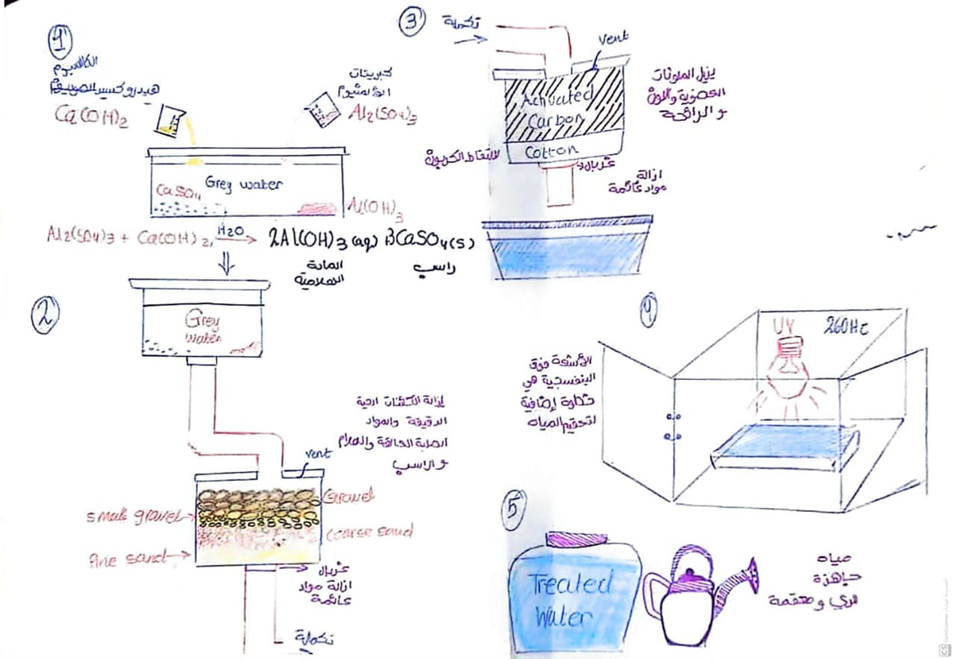 1
الكالسيوم
هيدروكسيد الصوديوم
Ca(OH)2
كبريتات
الألمنيوم
Al2(SO4)3
Grey water
CaSO4
Al(OH)3
Al2(SO4)3 + Ca(OH)2, H2O → 2Al(OH)3(aq) + 3CaSO4(s)
المادة
الهلامية
راسب
2
Grey
water
إزالة الكتلات
الدقيقة والمواد
الصلبة العالقة والهلام
والراسب
vent
Gravel
small gravel
coarse sand
fine sand
غربال
ازالة مواد
عائمة
تكملة
3
تكملة
vent
Activated
Carbon
Cotton
يزيل الملوثات
العضوية واللون
والرائحة
لالتقاط الكربون
غربال
ازالة
مواد عائمة
UV
260Hz
الأشعة فوق
البنفسجية هي
خطوة إضافية
لتعقيم المياه
5
Treated
Water
مياه
جاهزة
للري ومعقمة